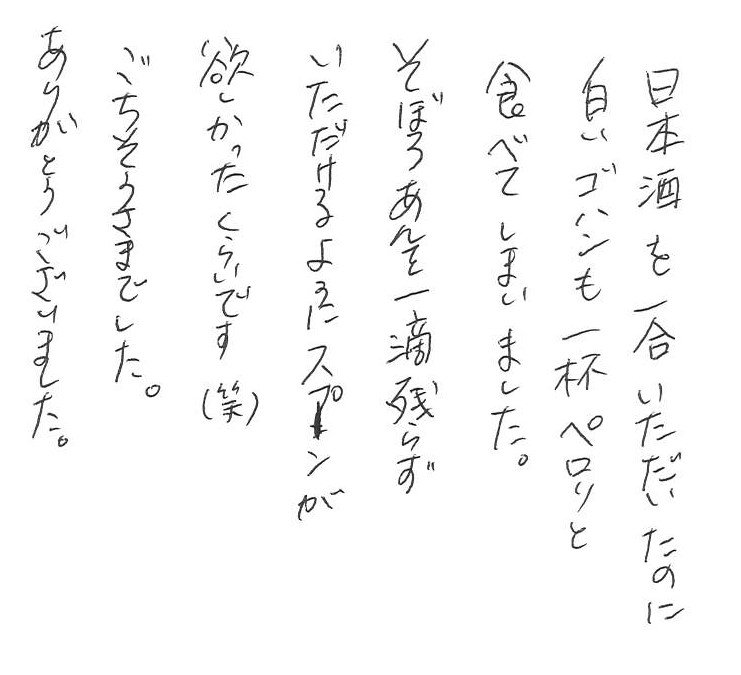 日本酒を一合いただいたのに
白いゴハンも一杯ペロリと
食べてしまいました。
そぼろあんを一滴残らず
いただけるようにスプーンが
欲しかったくらいです(笑)
ごちそうさまでした。
ありがとうございました。